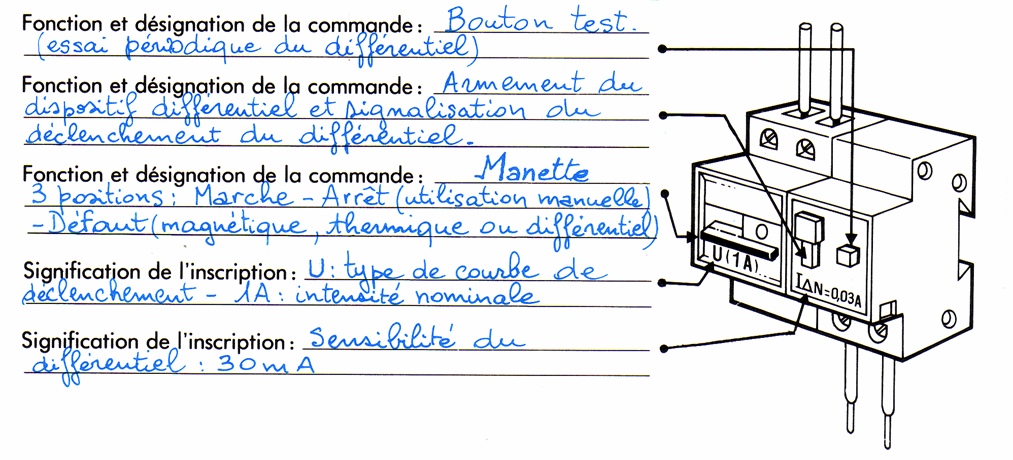 Fonction et désignation de la commande : Bouton test.
(essai périodique du différentiel)
Fonction et désignation de la commande : Armement du
dispositif différentiel et signalisation du
déclenchement du différentiel.
Fonction et désignation de la commande : Manette
3 positions : Marche - Arrêt (utilisation manuelle)
- Défaut (magnétique, thermique ou différentiel)
Signification de l'inscription : U : type de courbe de
déclenchement - 1A : intensité nominale
Signification de l'inscription : Sensibilité du
différentiel : 30 mA
U (1A)
I∆N=0,03A